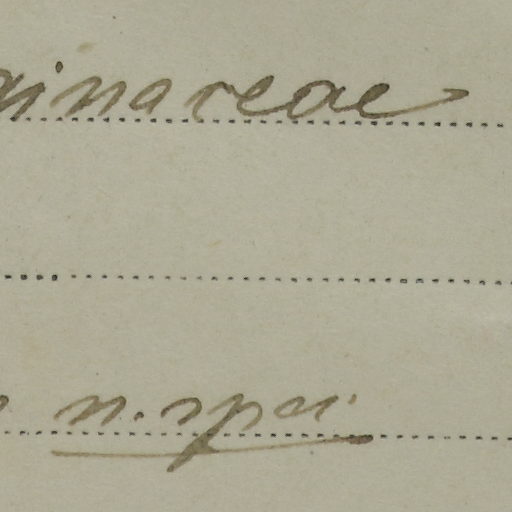 ginaceae
n. spec.